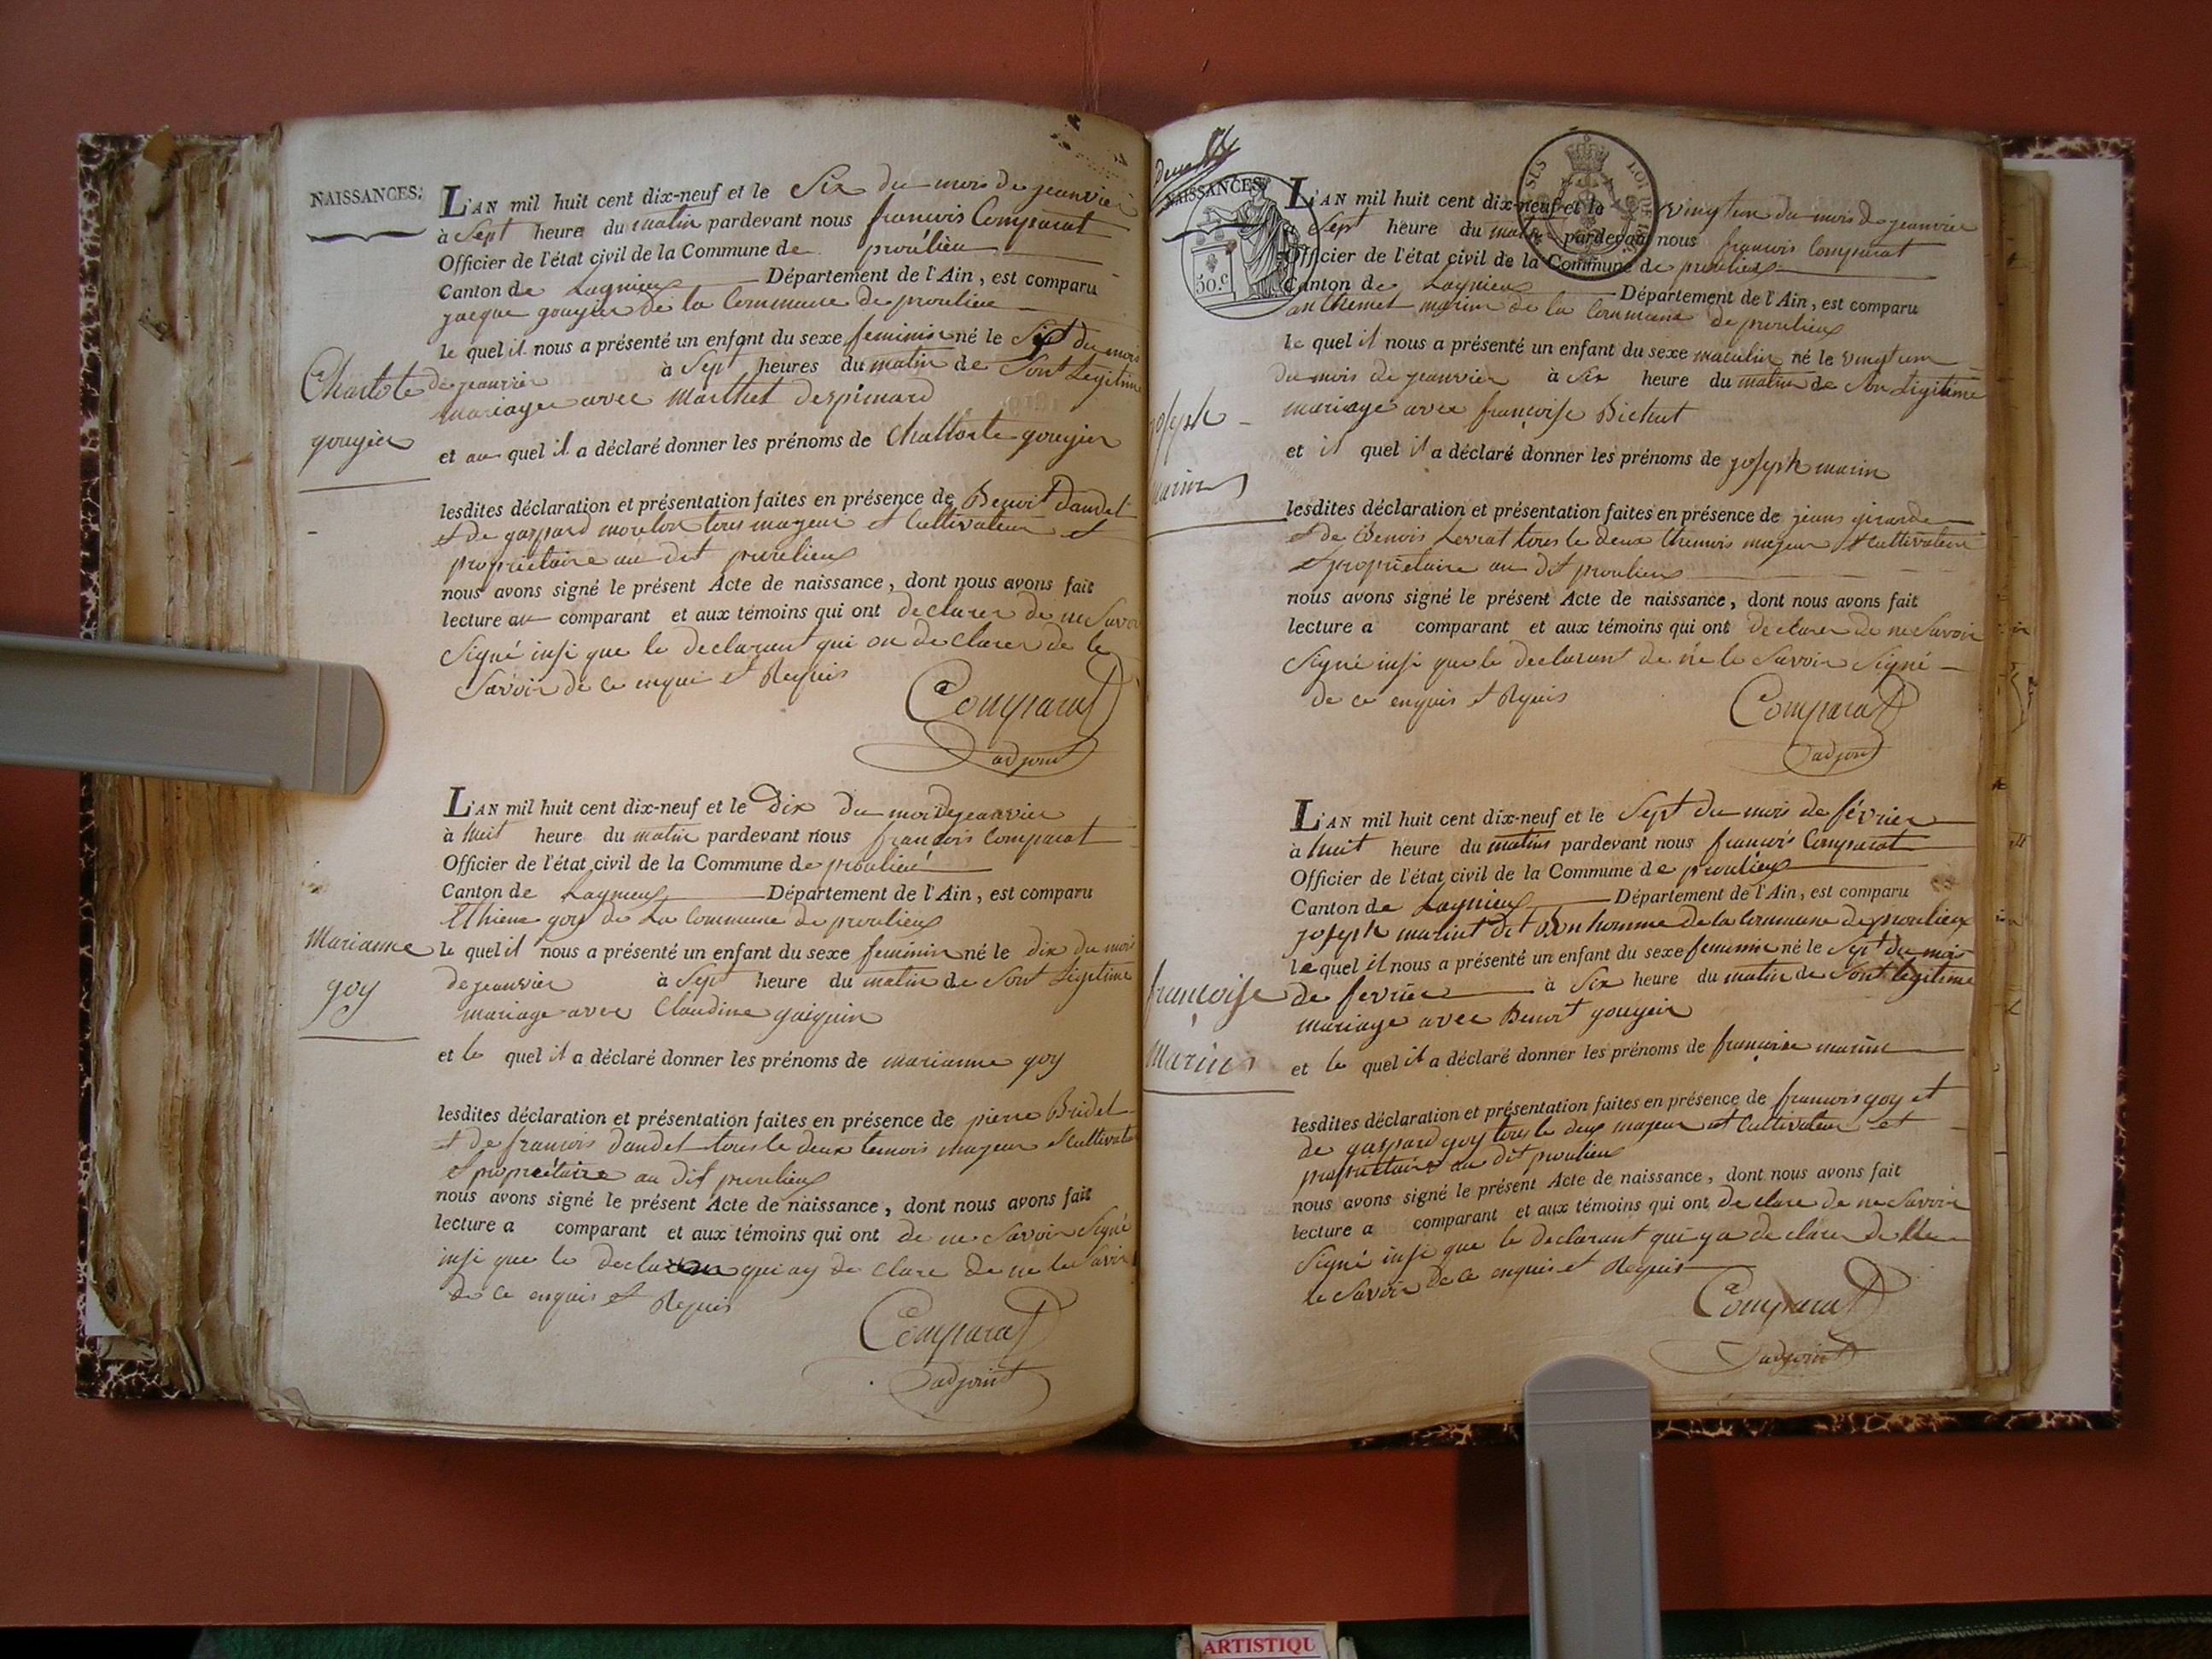 NAISSANCES.
L'AN mil huit cent dix-neuf et le Six du mois de jeanvier
à Sept heure du matin pardevant nous francois Comparat
Officier de l'état civil de la Commune de proulieu
Canton de Lagnieux Département de l'Ain, est comparu
jacque goujin de la Commune de proulieu
le quel il nous a présenté un enfant du sexe feminin né le du mois
de jeanvier à Sept heures du matin de Sont Legitime
mariage avec Marthet despinard
et au quel il a déclaré donner les prénoms de Chattoste goujin
Charlote
goujin
lesdites déclaration et présentation faites en présence de Benoit Daudet
et de gaspard moreton tous majeur et Cultivateur et
proprietaire au dit proulieux
nous avons signé le présent Acte de naissance, dont nous avons fait
lecture au comparant et aux témoins qui ont declarer de ne Savoir
Signé insi que le declarant qui on de clarer de le
Savoir de ce enqui et Requis
Comparat
adjoint
L'AN mil huit cent dix-neuf et le Dix du mois de jeanvier
à huit heure du matin pardevant nous francois Comparat
Officier de l'état civil de la Commune de proulieu
Canton de Lagnieux Département de l'Ain, est comparu
Ethiene goy de La Commune de proulieux
le quel il nous a présenté un enfant du sexe feminin né le dix du mois
de jeanvier à Sept heure du matin de Sont Legitime
mariage avec Claudine
et le quel il a déclaré donner les prénoms de marianne goy
Marianne
goy
lesdites déclaration et présentation faites en présence de pierre Bridet
et de francois daudet tous le deux temois majeur et Cultivateur
et propriétaire au dit proulieux
nous avons signé le présent Acte de naissance, dont nous avons fait
lecture a comparant et aux témoins qui ont de ne Savoir Signé
insi que le qui ay de clare de ne le Savoir
de ce enquis et Requis
Comparat
adjoint
NAISSANCES.
50.c
L'AN mil huit cent dix-neuf et le vingtun du mois de jeanvier
à Sept heure du matin pardevant nous francois Comparat
Officier de l'état civil de la Commune de proulieux
Canton de Lagnieux Département de l'Ain, est comparu
anthemet marin de la Commune de proulieux
le quel il nous a présenté un enfant du sexe maculin né le vingtun
du mois de jeanvier à Six heure du matin de Son Legitime
mariage avec françoise Bichut
et il quel il a déclaré donner les prénoms de joseph marin
joseph
marin
lesdites déclaration et présentation faites en présence de jeans girarde
et de Benois Levrat tous le deux themois majeur et Cultivateur
et proprietaire au dit proulieux
nous avons signé le présent Acte de naissance, dont nous avons fait
lecture a comparant et aux témoins qui ont declarer de ne Savoir
Signé insi que le declarant de ne le Savoir Signé
de ce enquis et Requis
Comparat
adjoint
L'AN mil huit cent dix-neuf et le Sept du mois de février
à huit heure du matin pardevant nous francois Comparat
Officier de l'état civil de la Commune de proulieux
Canton de Lagnieux Département de l'Ain, est comparu
joseph marint dit Bonhomme de la Commune de proulieux
le quel il nous a présenté un enfant du sexe feminin né le Sept du mois
de fevrier à Six heure du matin de Sont legitime
mariage avec Benoit goujin
et le quel il a déclaré donner les prénoms de francoise marin
françoise
Marin
lesdites déclaration et présentation faites en présence de francois goy et
de gaspard goy tous le deux majeur et Cultivateur et
proprietaire au dit proulieux
nous avons signé le présent Acte de naissance, dont nous avons fait
lecture a comparant et aux témoins qui ont de clare de ne Savoir
Signé insi que le declarant qui y a de clarer de ne
le Savoir de ce enquis et Requis
Comparat
adjoint
ARTISTIQU